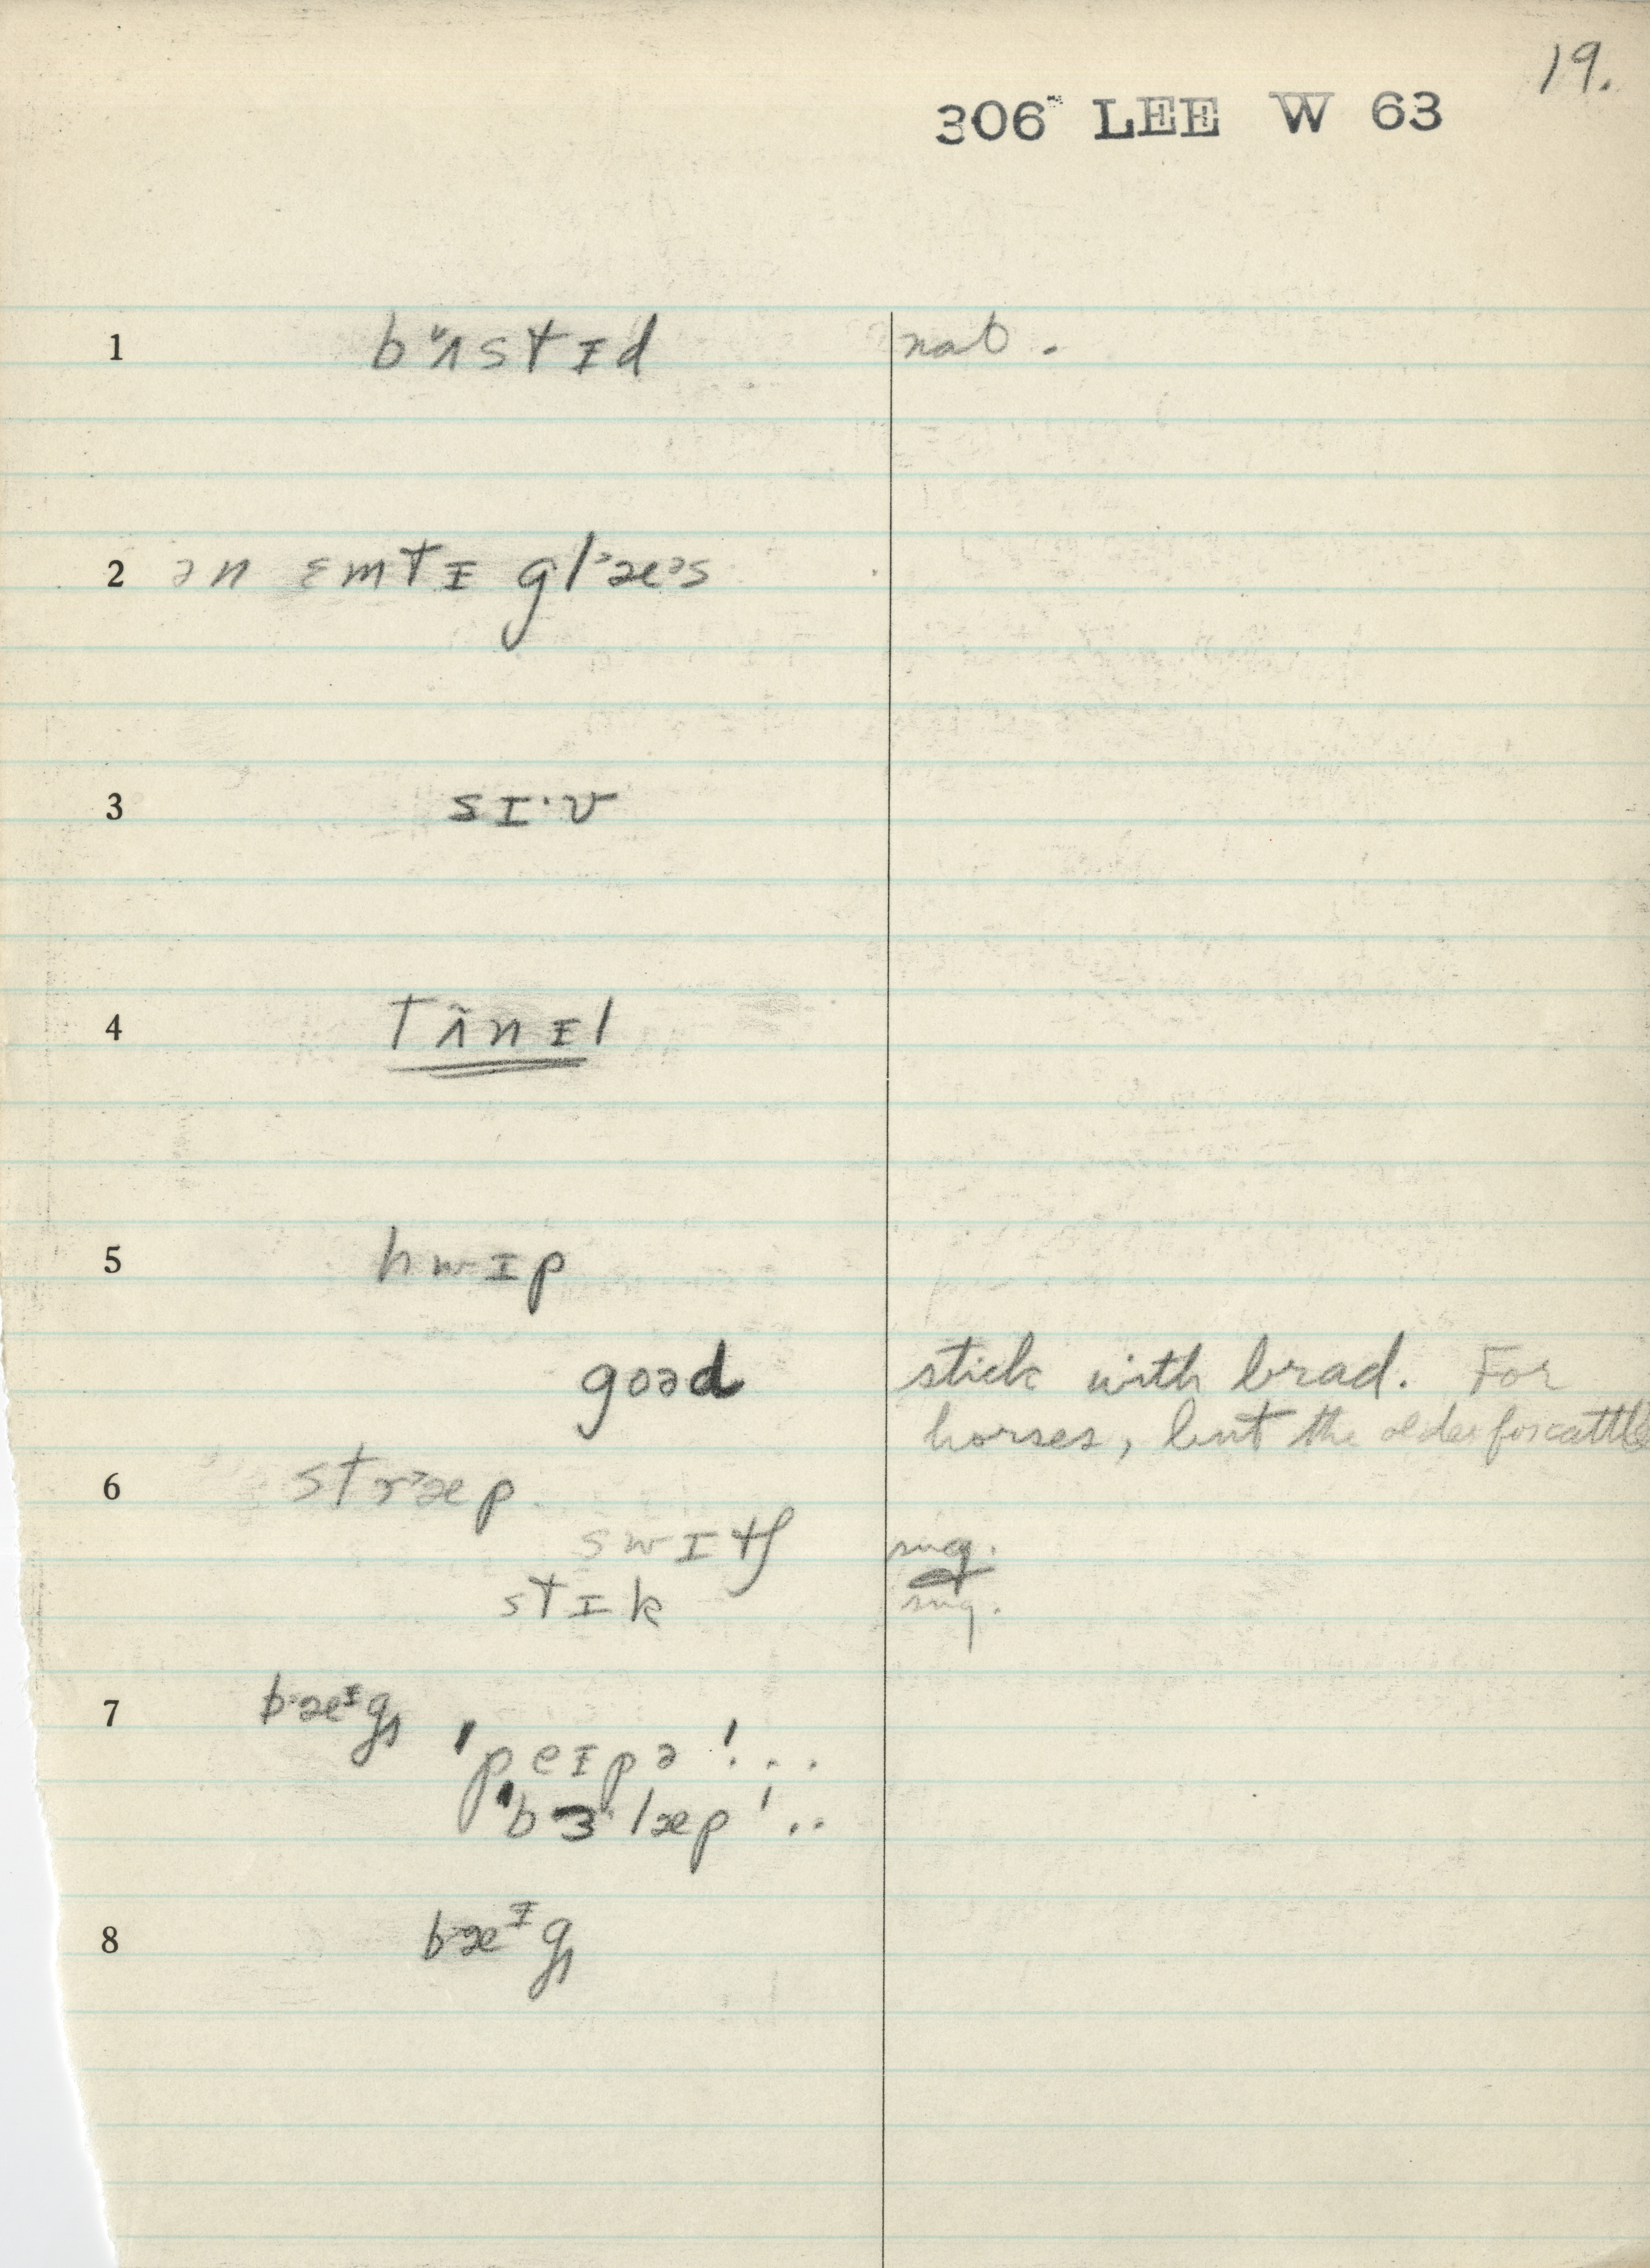 19.
306 LEE W 63
1 bʌstɪd nat.
2 ən ɛmtɪ glæs
3 sɪ·v
4 tʌ̃nɪl
5 hwɪp
goəd stick with brad. For
horses, but the older for cattle
6 stræp
swɪtʃ sug.
stɪk sug.
7 bæᶦg
ˈpeɪpə ˈ..
ˈbɜlæp ˈ..
8 bæᶦg